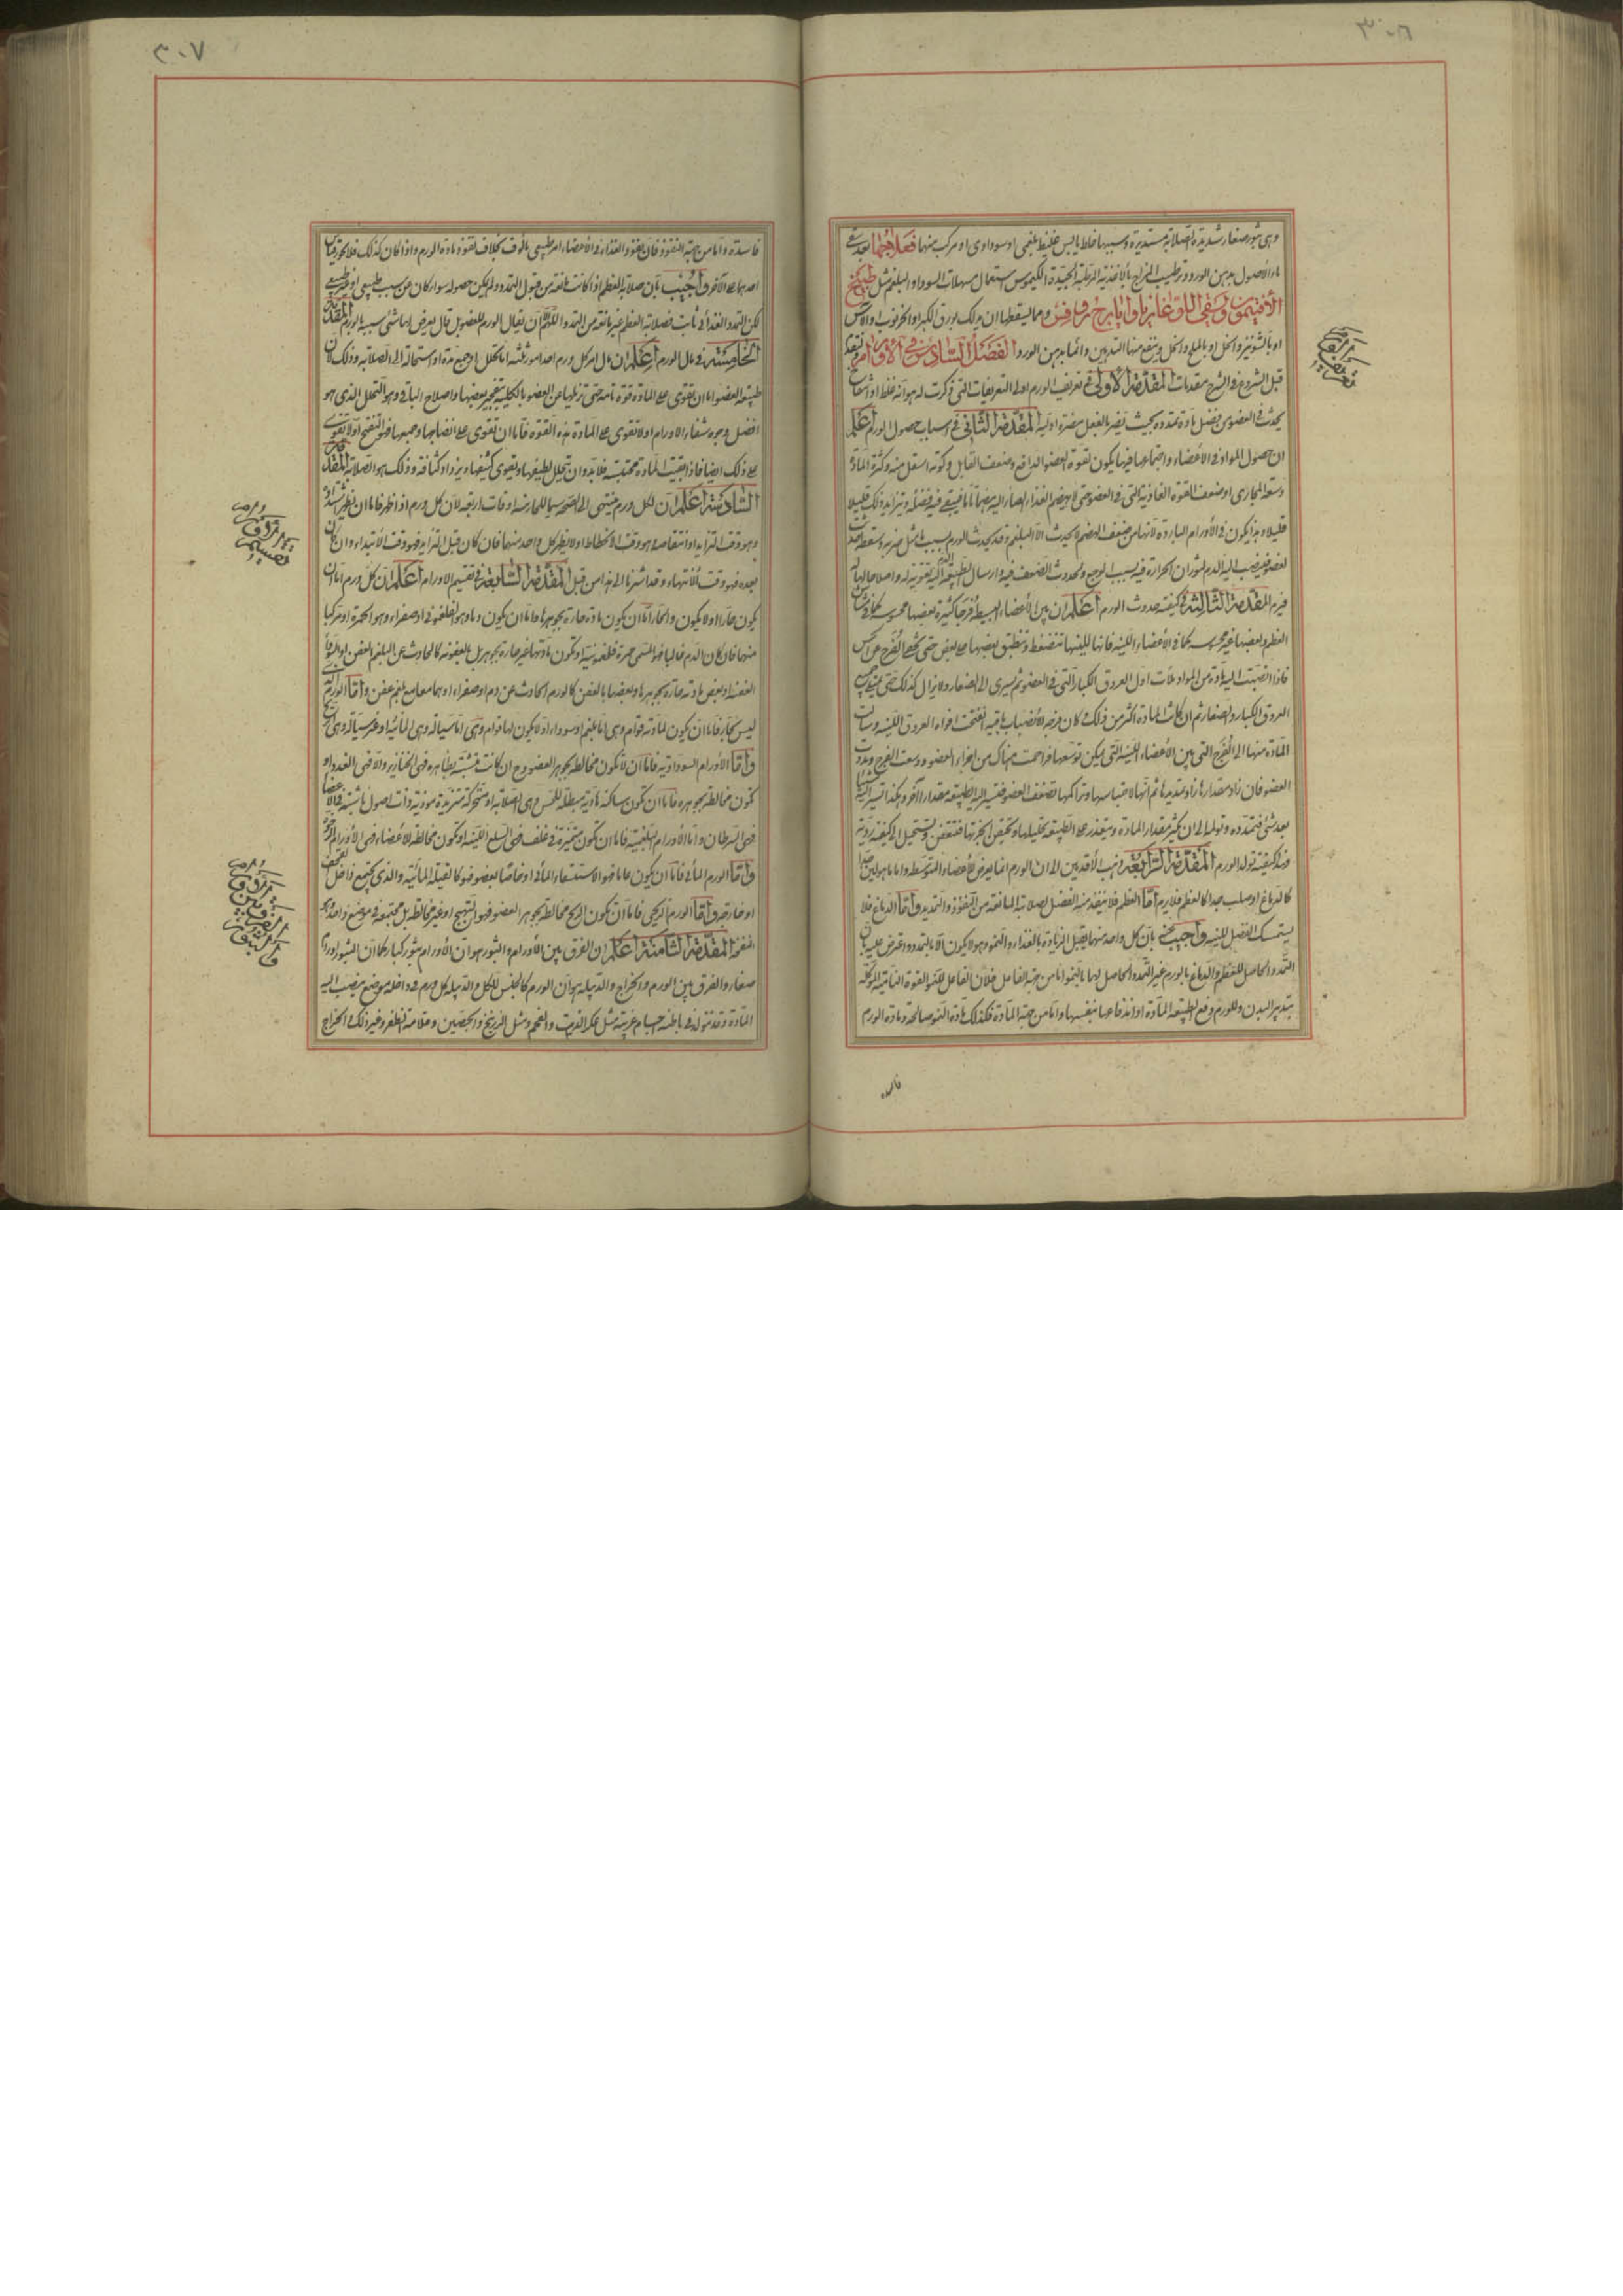 وهى بثور صغار شديدة الصلابة مستديرة وسببها خلط يابس غليظ بلغمى او سوداوى او مركب منهما فعلاجها بعد سقى
ماء الأصول بدهن الورد وترطيب المزاج بالأغذية المرطبة الجيدة الكيموس استعمال مسهلات السوداء والبلغم مثل طبيخ
الأفتيمون وسفى اللوغاذيا وايارج روفس ومما يسقطها ان يدلك بورق الكبر او الخرنوب او الآس
او بالشونيز والخل او بالملح والخل وينفع منها التدهين دائما بدهن الورد الفصل السادس فى الأورام لنقدم
قبل الشروع فى الشرح مقدمات المقدمة الأولى فى تعريف الورم اولى التعريفات التى ذكرت له هو انه غلظ او انتفاخ
يحدث فى العضو من فضل مادة تمدده بحيث يضر بالفعل مضرة اولية المقدمة الثانى فى اسباب حصول الورم اعلم
ان حصول المواد فى الأعضاء واجتماعها فيها يكون لقوة العضو الدافع وضعف القابل وكونه اسفل منه وكثرة المادة
وسعة المجارى او ضعف القوة الغاذية التى فى العضو حتى لا يهضم الغذاء الصائر اليه هضما تاما فيبقى فيه فضلة وتتزايد وذلك قليلا
قليلا وهذا يكون فى الأورام الباردة لأنها من ضعف الهضم لا يحدث الا البلغم وقد يحدث الورم بسبب مثل ضربة وسقطة
لعضو فينصب اليه الدم لثوران الحرارة فيه بسبب الوجع ولحدوث الضعف فيه وارسال الطبيعة الدم اليه تقوية له واصلاحا لها
فيرم المقدمة الثالثة كيفية حدوث الورم اعلم ان بين الأعضاء البسيطة فرجا كثيرة بعضها محسوسة كما فى مشاش
العظم وبعضها غير محسوسة كما فى الأعضاء اللينة فانها للينها تنضغط وتنطبق بعضها على بعض حتى تخفى الفرج عن الحس
فاذا انصبت اليه مادة من المواد ملأت اول العروق الكبار التى فى العضو ثم يسرى الى الصغار ولا يزال كذلك حتى يمتلئ جميع
العروق الكبار والصغار ثم ان كانت المادة اكثر من ذلك كان فرضه الأنصباب باقية انفتحت افواه العروق اللينة وسالت
المادة منها الى الفرج التى بين الأعضاء اللينة التى يمكن توسعها فزاحمت هناك من اجزاء العضو ووسعت الفرج ومددت
العضو فان زاد مقدارها زاد تمديدها ثم انها لاحتباسها وتراكمها تضعف العضو فتسير اليه الطبيعة مقدارا آخر وهكذا تسير اليه شيئا
بعد شئ فتمدده وتولمه الى ان يكثر مقدار المادة ويتعذر على الطبيعة تحليلها وتحتقن ابخرتها فتتعفن وتستحيل الى كيفية ردية
فهذا كيفية تولد الورم المقدمة الرابعة ذهب الأقدمين الى ان الورم انما يعرض للأعضاء المتوسطة واما ما هو لين جدا
كالدماغ او صلب جدا كالعظم فلا يرم اما العظم فلا ينفذ فيه الفضل لصلابته المانعة من النفوذ والتمديد واما الدماغ فلا
يستمسك الفضل للينه واجيب عنه بان كل واحد منهما يقبل الزيادة بالغذاء والنمو وهو لا يكون الا بالتمدد واعترض عليه بان
التمدد الحاصل للعظم والدماغ بالورم غير التمدد الحاصل لهما بالنمو اما من جهة الفاعل فلان الفاعل للنمو القوة النامية الموكلة
بتدبير البدن وللورم دفع الطبيعة المادة او اندفاعها بنفسها واما من جهة المادة فكذلك مادة النمو صالحة ومادة الورم
فاسده
فاسدة واما من جهة النفوذ فان نفوذ الغذاء فى الأعضاء امر طبيعى مألوف بخلاف نفوذ مادة الورم واذا كان كذلك فلا يحمل
احدهما على الآخر واجيب بان صلابة العظم اذا كانت مانعة من قبول التمدد لم يكن حصوله سواء كان عن سبب طبيعى او غير طبيعى
لكن التمدد الغذائى ثابت فصلابة العظم غير مانعة من التمدد اللهم ان يقال الورم للعضو بل قال يعرض لها شئ شبيه بالورم المقدمة
الخامسة فى مآل الورم اعلم ان مآل امر كل ورم احد امور ثلثة اما تحلل او جمع مدة او استحالة الى الصلابة وذلك لان
طبيعة العضو اما ان تقوى على المادة قوة تامة حتى تزيلها عن العضو بالكلية بتبخير بعضها واصلاح الباقى وهو التحلل الذى هو
افضل وجوه شفاء الاورام او لا تقوى على المادة هذه القوة فاما ان تقوى على انضاجها وجمعها فهو التفتح او لا تقوى
على ذلك ايضا فاذا بقيت المادة محتبسة فلابد وان تحلل لطيفها ويقوى كثيفها ويزداد كثافة وذلك هو الصلابة المقدمة
السادسة اعلم ان لكل ورم منتهى الى الصحة سيما للحارمنه اوقات اربعة لان كل ورم اذا ظهر فاما ان يظهر اشتداده
وهو وقت التزايد او انتقاصه وهو وقت الانحطاط او لا يظهر كل واحد منهما فان كان قبل التزايد فهو وقت الابتداء وان كان
بعده فهو وقت الأنتهاء وقد اشرنا الى هذا من قبل المقدمة السابعة فى تقسيم الاورام اعلم ان كل ورم اما ان
يكون حارا او لا يكون والحار اما ان يكون مادة حارة بجوهرها واما ان يكون دما وهو الفلغمونى او صفراء وهو الحمرة او مركبا
منهما فان كان الدم غالبا فهو المسمى حمرة فلغمونية او تكون مادتها غير حارة بجوهر بل بالعفونة كالحادث عن البلغم العفن او السوداء
العفنة او بعض مادته حارة بجوهرها وبعضها بالعفن كالورم الحادث عن دم او صفراء او هما معا مع بلغم عفن واما الورم الذى
ليس بحار فاما ان يكون لمادته قوام وهى اما بلغم او سوداء او لا يكون لها قوام وهى اما سيالة وهى المائية او غير سيالة وهى الريح
واما الأورام السوداوية فاما ان لا تكون مخالطة بجوهر العضو وح ان كانت متشبثة بظاهره فهى الخنازير والا فهى الغدد او
تكون مخالطة بجوهره فاما ان تكون ساكنة هادية مبطلة للحس وهى الصلابة او متحركة متزيدة موذية ذات اصول ناشبة فى الأعضاء
فهى السرطان واما الأورام البلغمية فاما ان تكون متميزة فى غلف فهى السلع اللينة او تكون مخالطة للأعضاء فهى الأورام الرخوة
واما الورم المائى فاما ان يكون عاما فهو الاستسقاء المائى او خاصا بعضو فهو كالقيلة المائية والذى يجتمع داخل القحف
او خارجه واما الورم الريحى فاما ان يكون الريح مخالطة بجوهر العضو فهو التهيج او غير مخالطة بل مجتمعة فى موضع واحد وهو
النفخة المقدمة الثامنة اعلم ان الفرق بين الأورام والبثور هو ان الأورام بثور كبار كما ان البثور اورام
صغار والفرق بين الورم والخراج والدبيلة هو ان الورم كالجنس للكل والدبيلة كل ورم فى داخله موضع ينصب اليه
المادة وقد تتولد فى باطنه اجسام غريبة مثل عكر الزيت والفحم ومثل الزرنيخ والجصين وقلامة الظفر وغير ذلك والخراج